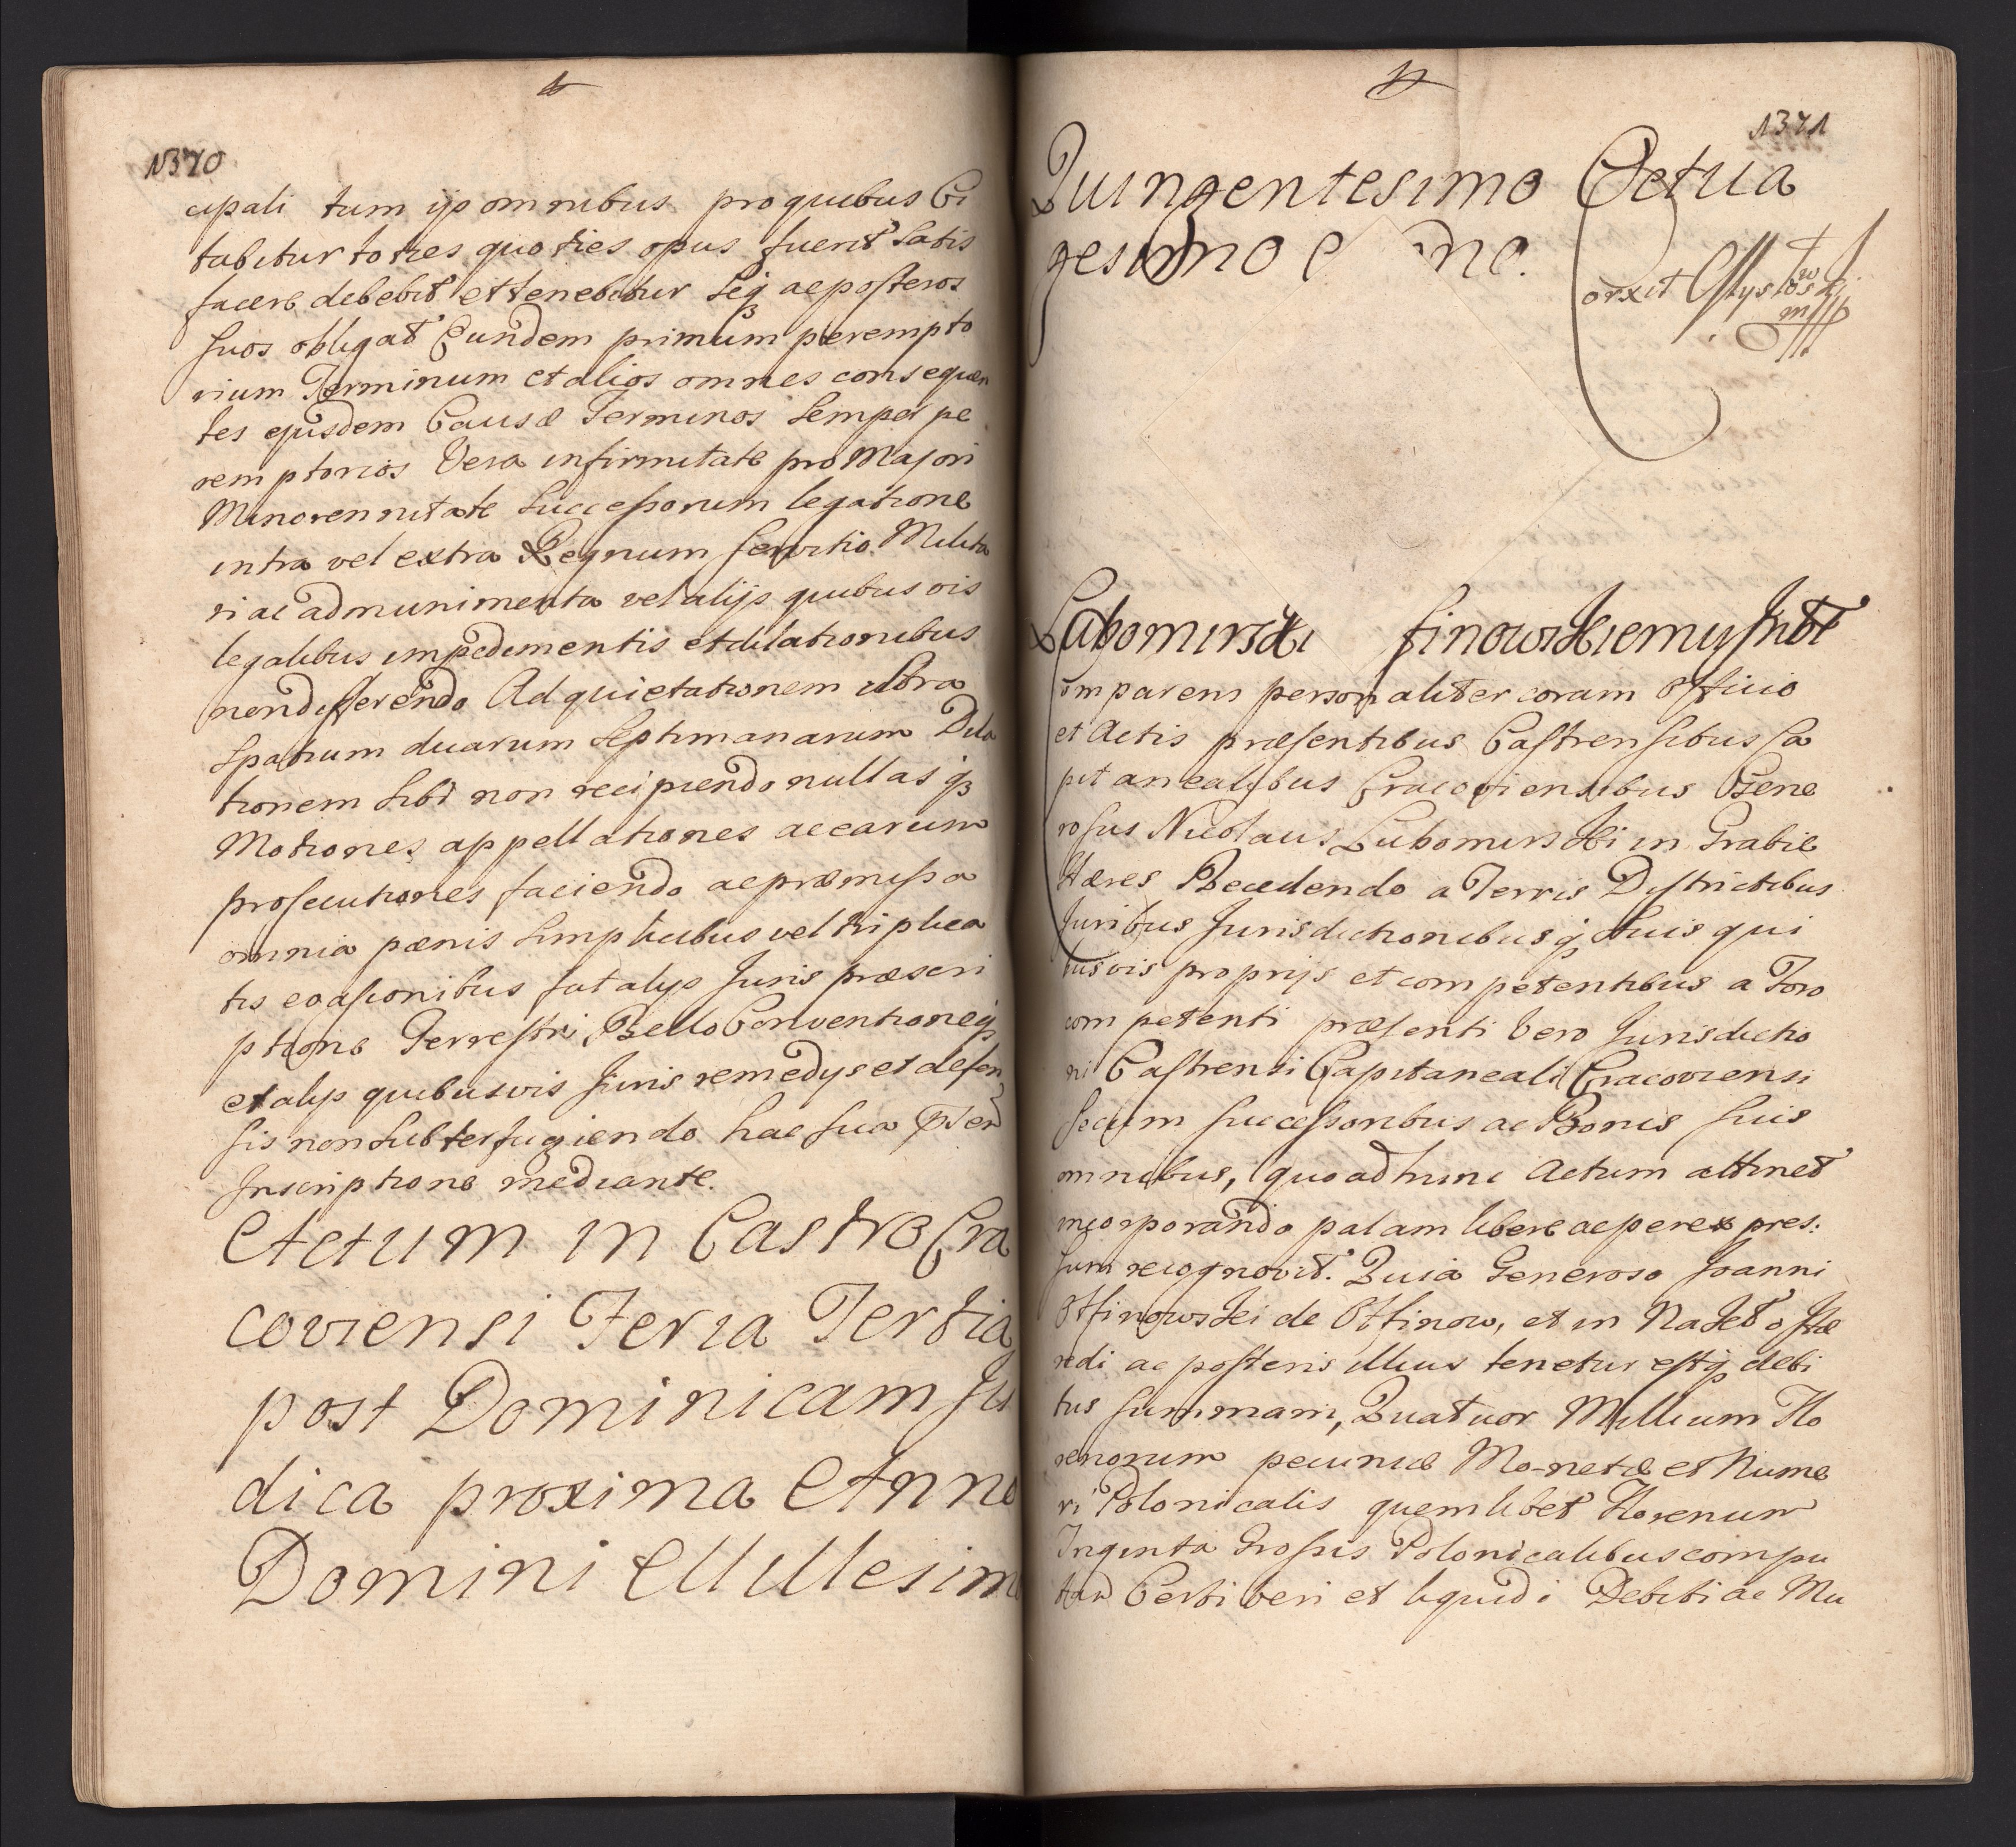 1370
cipali tum ijs omnibus pro quibus Ci
tabitur toties quoties opus fuerit Satis
facere debebit et tenebitur Seq ac posteros
suos obligat Eundem primum perempto
rium Terminum et alios omnes consequen
tes ejusdem Causæ Terminos Semper pe
remptorios Vera infirmitate pro Majori
Minorennitate Successorum legatione
intra vel extra Regnum servitio Milita
ri ac admunimenta vel alijs quibusvis
legalibus impedimentis et dilationibus
non differendo Ad quietationem ultra
Spatium duarum Septimanarum Dila
tionem Sibi non recipiendo nullasq
Motiones appellationes ac earum
prosecutiones faciendo ac præmissa
omnia pænis Simplicibus vel triplica
tis evasionibus fatalijs Juris præscri
ptione Terrestri Bello Conventioneq
et alijs quibusvis Juris remedijs et defen
sis non Subterfugiendo hac sua
Inscriptione mediante.
Actum in Castro Cra
coviensi Feria Tertia
post Dominicam Ju
dica proxima Anno
Domini Millesimo
1371
Quingentesimo Octua
gesimo
Lubomirski finowskiemu Inst
omparens personaliter coram Officio
et Actis præsentibus Castrensibus Ca
pitanealibus Cracoviensibus Gene
rosus Nicolaus Lubomirski in Grabie
Hæres Recedendo a Terris Districtibus
Juribus Jurisdictionibusq Suis qui
busvis proprijs et competentibus a Foro
competenti præsenti vero Jurisdictio
ni Castrensi Capitaneali Cracoviensi
secum successoribus ac Bonis suis
omnibus, quo ad hunc Actum attinet
incorporando palam libere ac per expres:
sum recognovit. Quia Generoso Joanni
Otfinowski de Otfinow, et in Hæ
redi ac posteris illius tenetur estq debi
tus summam, Quatuor Millium Flo
renorum pecuniæ Monetæ et Nume
ri Polonicalis quemlibet Florenum
Inginta Grossis Polonicalibus compu
tan Certi veri et liquidi Debiti ac Mu